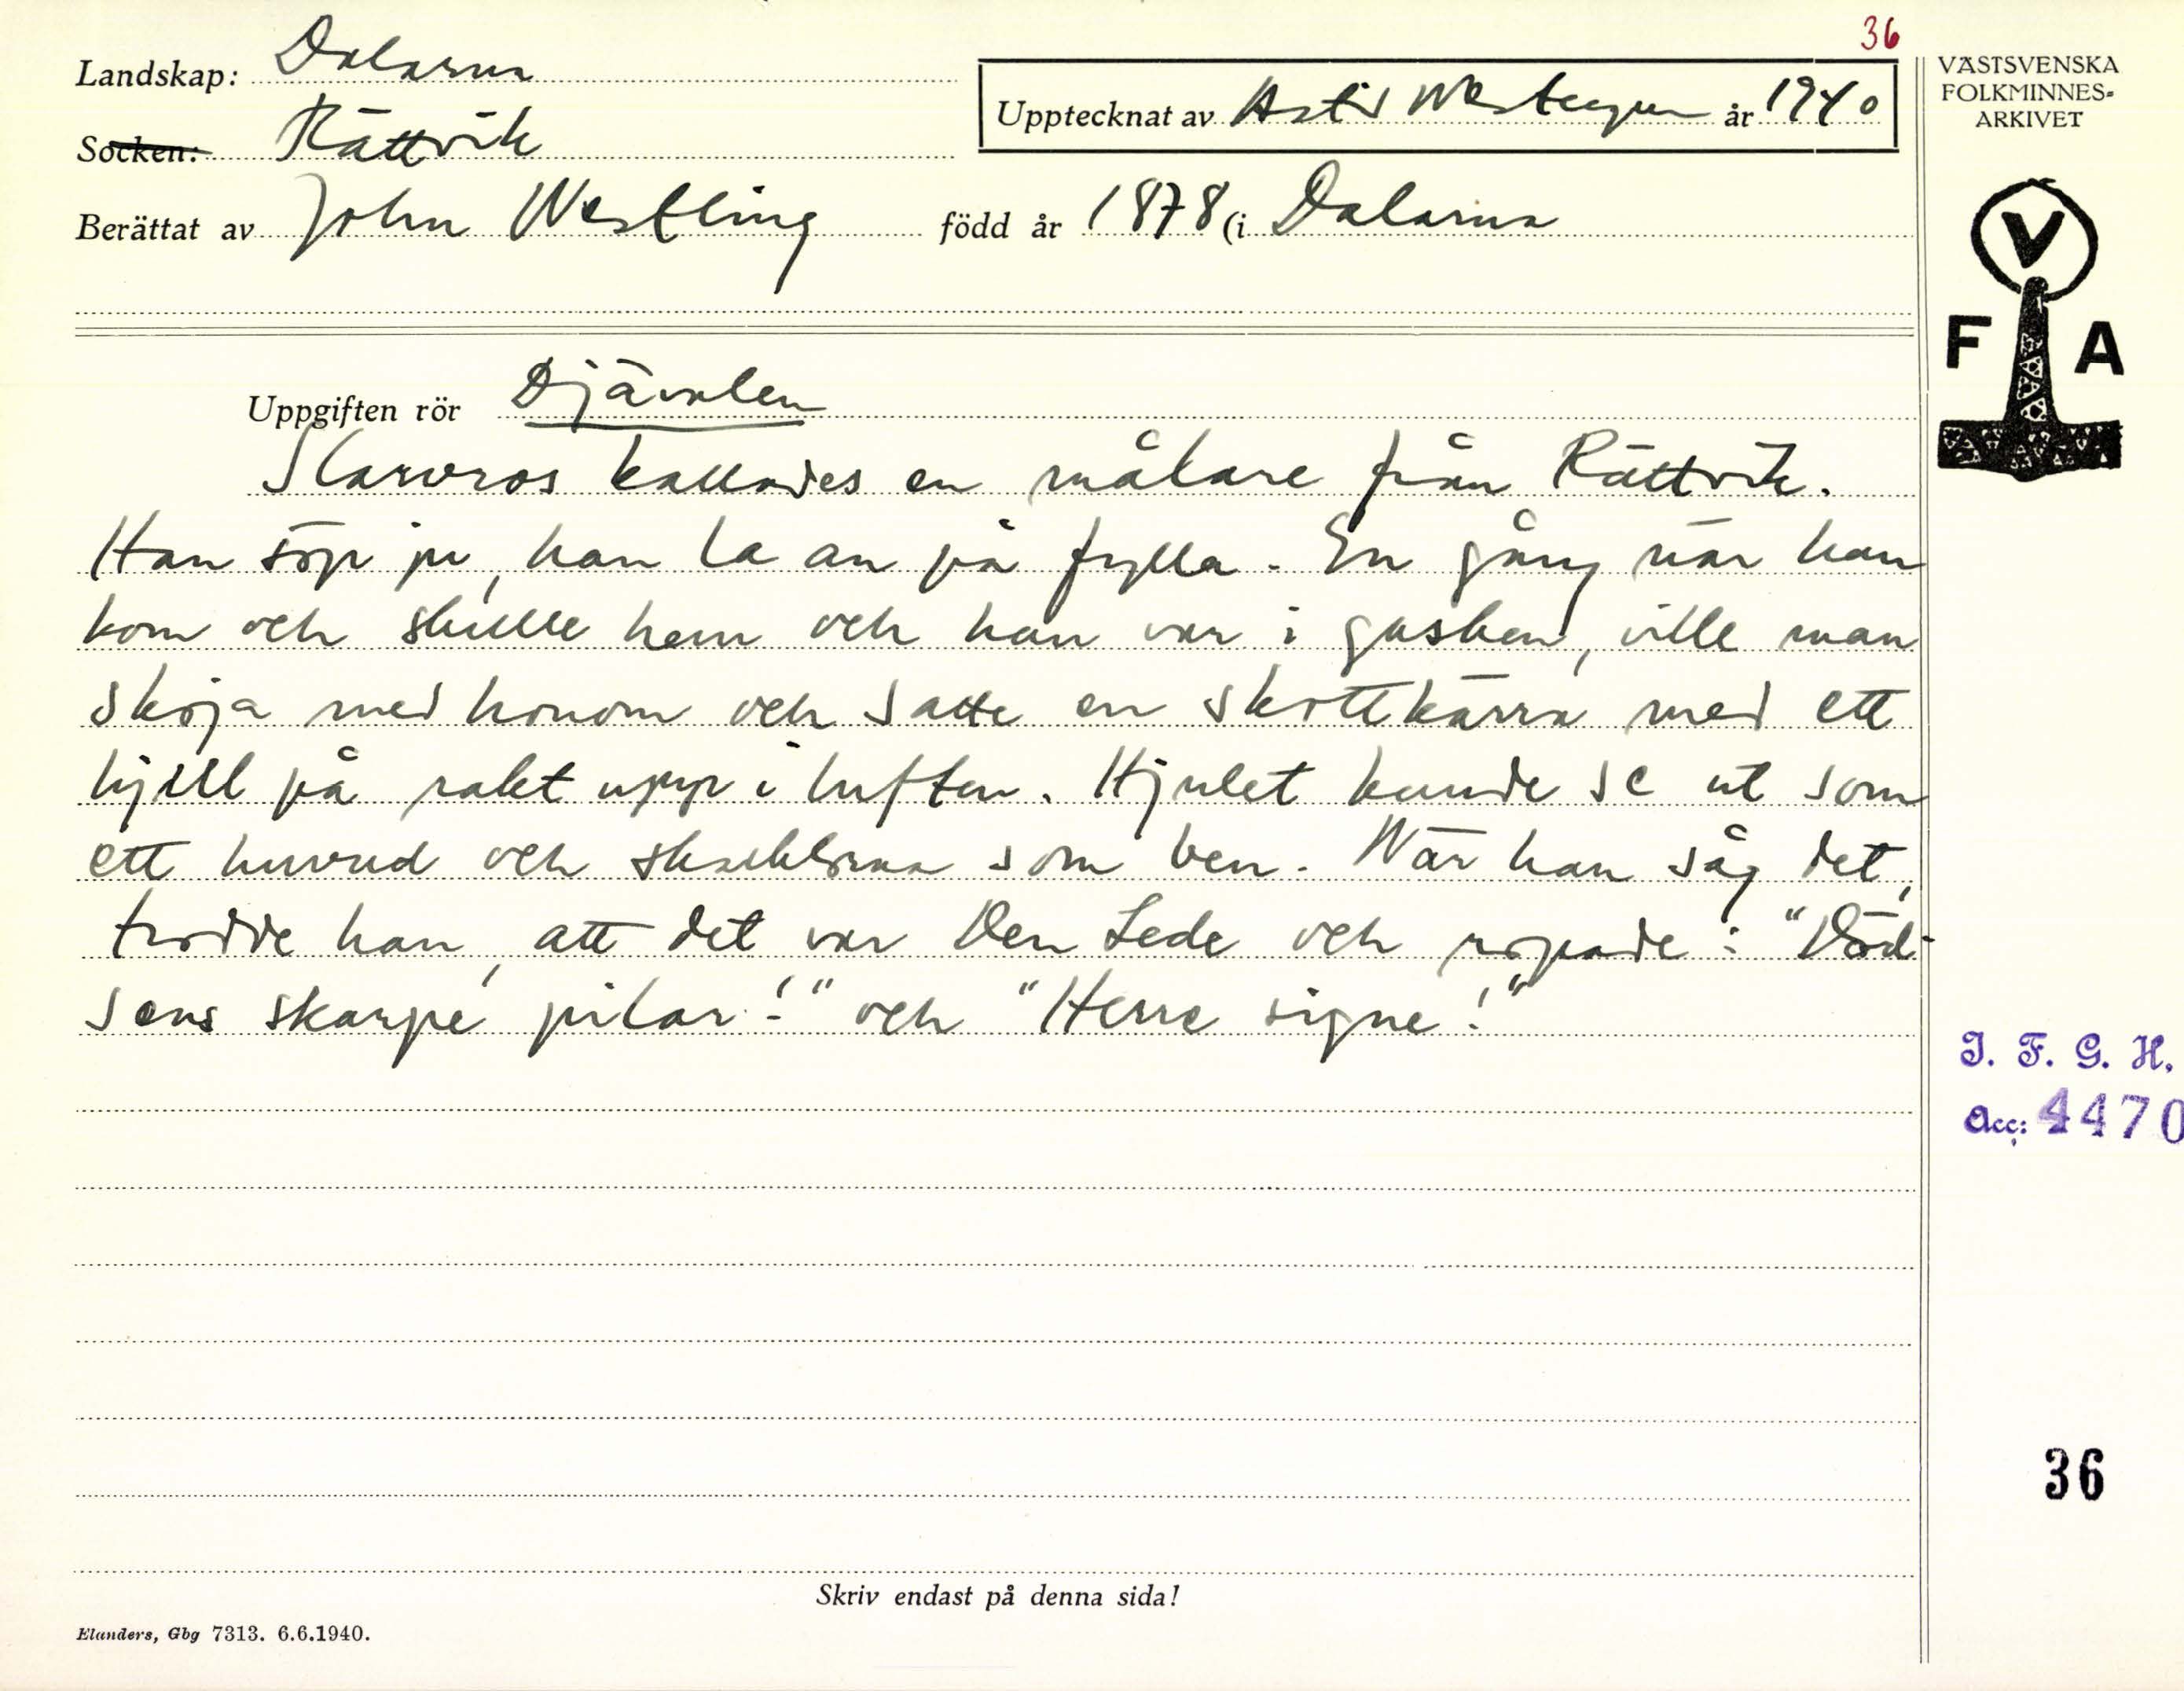 36
Landskap: Dalarna
Socken: Rättvik
Upptecknat av Astid Westergren år 1940
Berättat av John Westling född år 1878 (i Dalarna
VÄSTSVENSKA
FOLKMINNES-
ARKIVET
V
F A
Uppgiften rör Djävulen
kallades en målare från Rättvik.
Han söp ju, han la an på fylla. En gång när han
kom och skulle hem och han var i gasken, ville man
skoja med honom och satte en skottkärra med ett
hjul på rakt upp i luften. Hjulet kunde se ut som
ett huvud och skacklorna som ben. När han såg det,
trodde han, att det var Den Lede och ropade: "Död-
sens skarpe pilar!" och "Herre signe!"
I. F. G. H.
Acc: 4470
36
Skriv endast på denna sida!
Elanders, Gbg 7313. 6.6.1940.